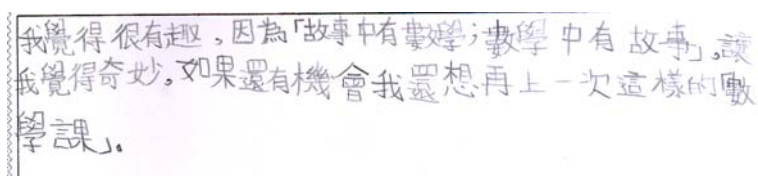 我覺得很有趣，因為「故事中有數學；數學中有故事」，讓
我覺得奇妙。如果還有機會我還想再上一次這樣的「數
學課」。